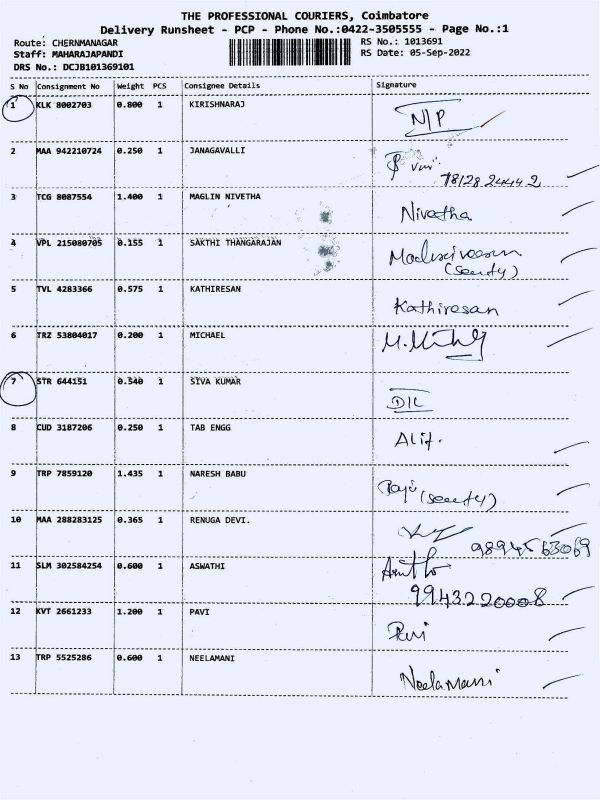 THE PROFESSIONAL COURIERS, Coimbatore
Delivery Runsheet - PCP - Phone No.:0422-3505555 - Page No.:1
Route: CHERNMANAGAR RS No.: 1013691
Staff: MAHARAJAPANDI RS Date: 05-Sep-2022
DRS No.: DCJB101369101
S No Consignment No Weight PCS Consignee Details Signature
1 KLK 8002703 0.800 1 KIRISHNARAJ
N/P
2 MAA 942210724 0.250 1 JANAGAVALLI
78128 24442
3 TCG 8087554 1.400 1 MAGLIN NIVETHA
Nivetha
4 VPL 215080705 0.155 1 SAKTHI THANGARAJAN
5 TVL 4283366 0.575 1 KATHIRESAN
Kathiresan
6 TRZ 53804017 0.200 1 MICHAEL
7 STR 644151 0.540 1 SIVA KUMAR
D/L
8 CUD 3187206 0.250 1 TAB ENGG
Alif.
9 TRP 7859120 1.435 1 NARESH BABU
10 MAA 288283125 0.365 1 RENUGA DEVI.
9894563069
11 SLM 302584254 0.600 1 ASWATHI
9943220008
12 KVT 2661233 1.200 1 PAVI
Pavi
13 TRP 5525286 0.600 1 NEELAMANI
Neelamani